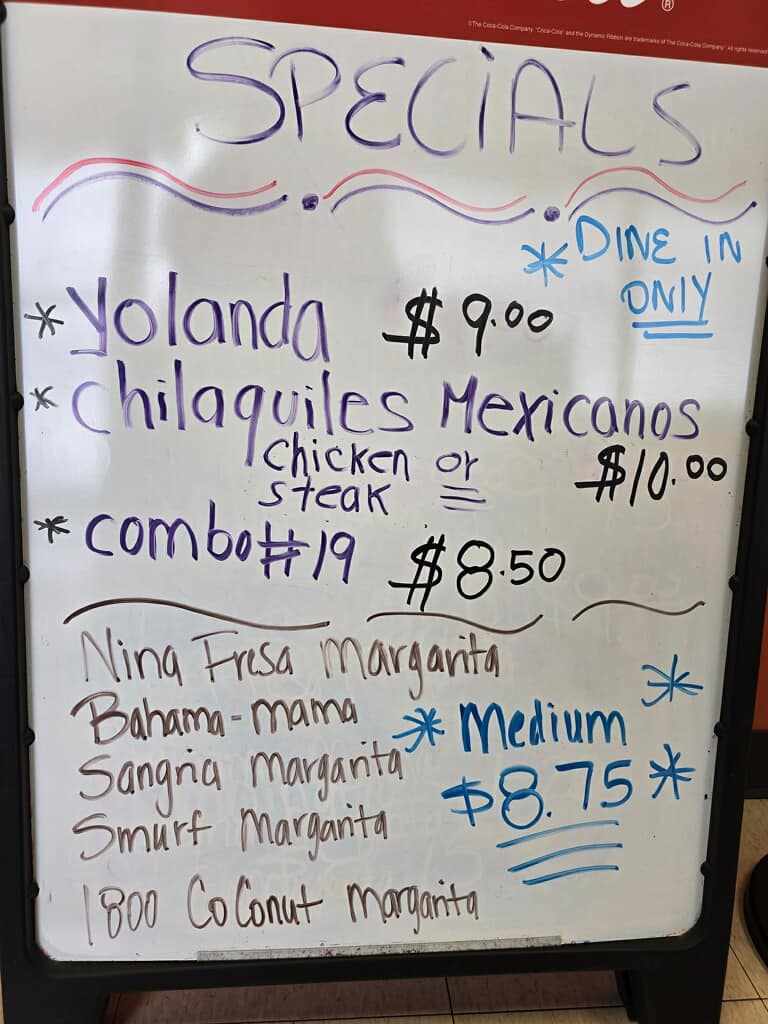 ©The Coca-Cola Company. "Coca-Cola" and the Dynamic Ribbon are trademarks of The Coca-Cola Company. All rights reserved
SPECIALS
* DINE IN
ONLY
* Yolanda $9.00
* Chilaquiles Mexicanos
chicken or
steak
$10.00
* combo #19 $8.50
Nina Fresa Margarita
Bahama-mama
Sangria Margarita
Smurf Margarita
1800 CoConut Margarita
* Medium *
$8.75 *